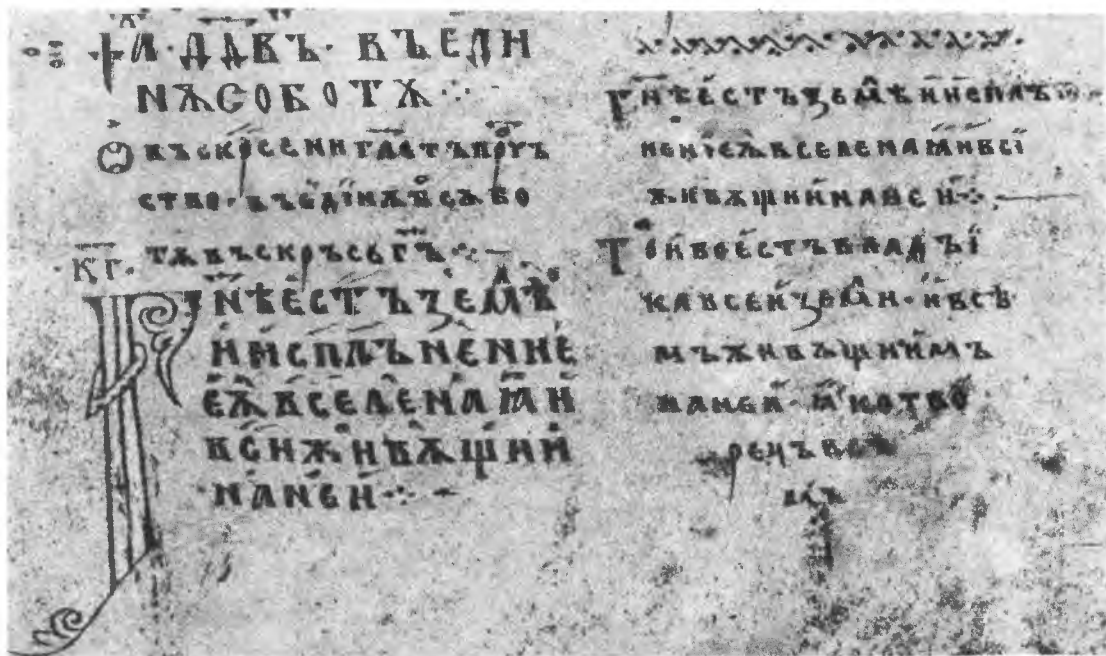 ѰА · ДАВЪ · ВЪ ЕДИ
НѪ СОБОТѪ
Ѡ ВЪСКРСЕНИ ГЛЕТЪ ПРРЪ
СТВО · ВЪ ЕДІНѪ СѪБО
ТѪ ВЪСКРЪСЬ ГЪ
КГ·
ГНѢ ЕСТЪ ЗЕМѢ
И ИСПЛЪНЕННЕ
ЕѪ ВСЕЛЕНАꙖ И
ВСИ ЖИВѪЩИИ
НА НЕИ
ГНѢ ЕСТЪ ЗЕМѢ И ИСПЛЪ
НЕНІЕ Ѫ ВСЕЛЕНАꙖ И ВСІ
ЖИВѪЩИИ НА НЕИ
ТОИ БО ЕСТЪ ВЛАДЪІ
КА ВСЕИ ЗЕМИ · И ВСѢ
МЪ ЖИВѪЩИИМЪ
НА НЕИ · ꙖКО ТВО
РЕЦЪ ВСѢ
МЪ